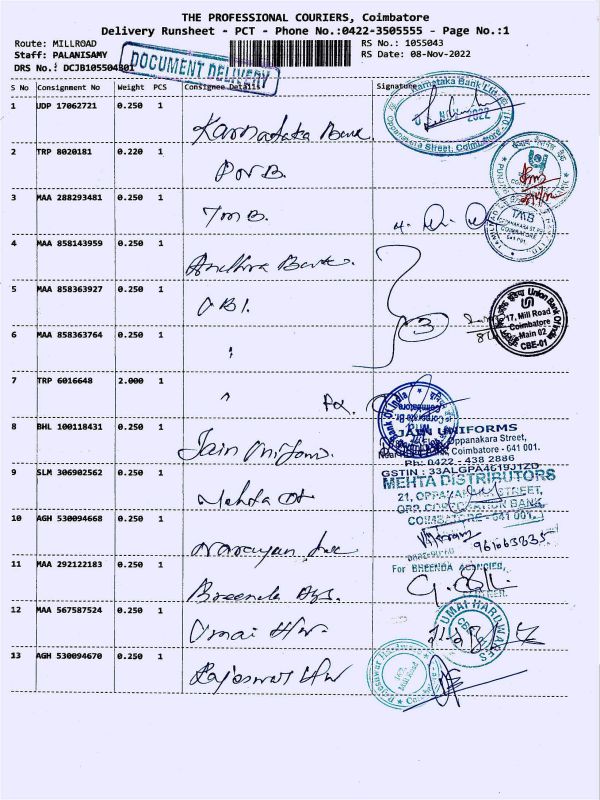 THE PROFESSIONAL COURIERS, Coimbatore
Delivery Runsheet - PCT - Phone No.:0422-3505555 - Page No.:1
Route: MILLROAD RS No.: 1055043
Staff: PALANISAMY RS Date: 08-Nov-2022
DRS No.: DCJB105504301
DOCUMENT DELIVERY
S No Consignment No Weight PCS Consignee Details Signature
1 UDP 17062721 0.250 1 Karnataka Bank
Karnataka Bank Ltd.
NOV 2022
Oppanakara Street, Coimbatore
2 TRP 8020181 0.220 1 PNB.
3 MAA 288293481 0.250 1 TMB.
4 MAA 858143959 0.250 1 Andhra Bank.
5 MAA 858363927 0.250 1 OBI.
3
Union Bank Of India
17, Mill Road
Coimbatore
Main 02
CBE-01
6 MAA 858363764 0.250 1 "
7 TRP 6016648 2.000 1 "
Bank Of India
8 BHL 100118431 0.250 1 Jain Uniforms.
JAIN UNIFORMS
Oppanakara Street,
Coimbatore - 641 001.
Ph: 0422 - 438 2886
GSTIN : 33ALGPA4619J1ZD
9 SLM 306902562 0.250 1 Mehta
MEHTA DISTRIBUTORS
21, OPPANAKARA STREET,
OPP. CORPORATION BANK,
COIMBATORE - 641 001.
10 AGH 530094668 0.250 1 Narayan
11 MAA 292122183 0.250 1 Breenda Ags.
For BREENDA AGENCIES,
12 MAA 567587524 0.250 1 Umai Hw.
UMAI HARDWARES
13 AGH 530094670 0.250 1 Rajeswari Hw
Mill Road